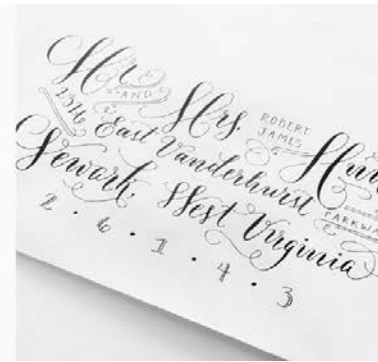 Mr. AND Mrs. ROBERT JAMES
13th East Vanderhurst
Newark, West Virginia
2 • 6 • 1 • 4 • 3